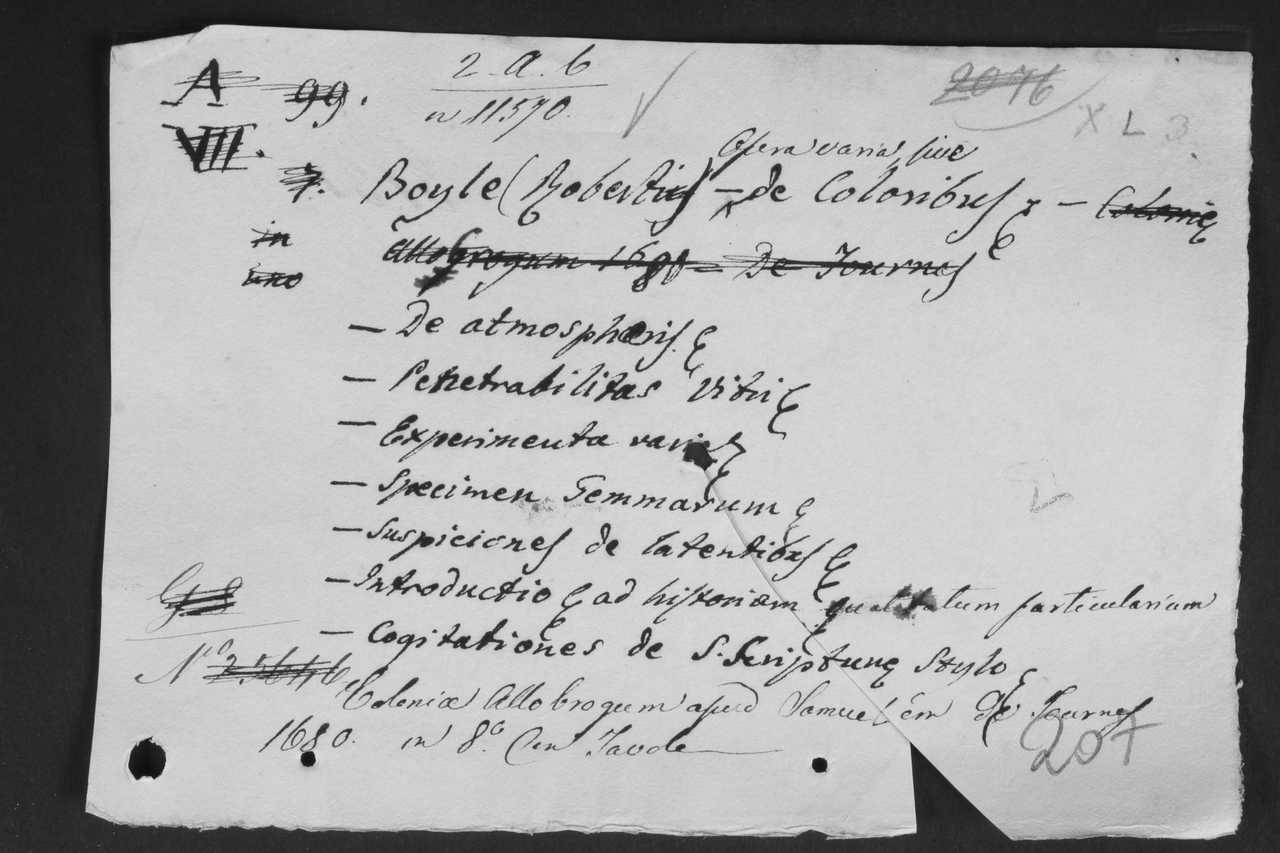 A 99. 2. a. 6 2076
VIII. n 11570. X L 3
Opera varia, sive
7. Boyle (Robertus) — de Coloribus, — Coloniæ
in Allobrogum 1680 — De Tournes
uno
— De atmosphæris.
— Penetrabilitas Vitri
— Experimenta varia
— Specimen Gemmarum
— Suspiciones de latentibus
— Introductio ad historiam qualitatum particularium
— Cogitationes de S. Scripturæ Stylo
N.º 25646
Coloniæ Allobrogum apud Samuelem De Tournes
1680. in 8.º Con Tavole
207